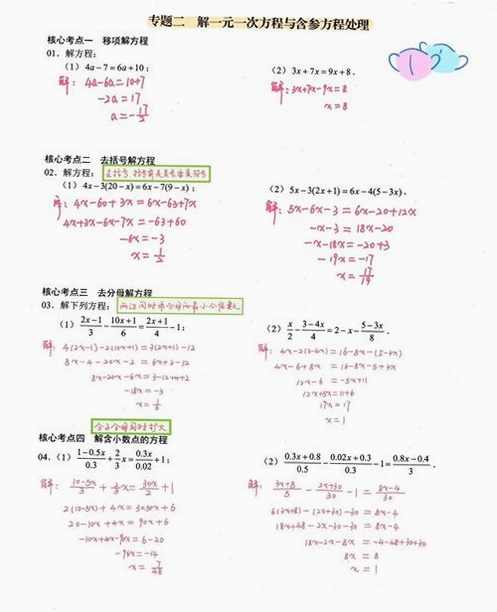 专题二 解一元一次方程与含参方程处理
核心考点一 移项解方程
01. 解方程:
(1) 4a-7=6a+10;
解: 4a-6a=10+7
-2a=17
a=-17/2
(2) 3x+7x=9x+8.
解: 3x+7x-9x=8
x=8
核心考点二 去括号解方程
02. 解方程: 去括号 括号前是负号要变号
(1) 4x-3(20-x)=6x-7(9-x);
解: 4x-60+3x=6x-63+7x
4x+3x-6x-7x=-63+60
-6x=-3
x=1/2
(2) 5x-3(2x+1)=6x-4(5-3x).
解: 5x-6x-3=6x-20+12x
-x-3=18x-20
-x-18x=-20+3
-19x=-17
x=17/19
核心考点三 去分母解方程
03. 解下列方程: 两边同时乘分母的最小公倍数
(1) (2x-1)/3-(10x+1)/6=(2x+1)/4-1;
解: 4(2x-1)-2(10x+1)=3(2x+1)-12
8x-4-20x-2=6x+3-12
8x-20x-6x=3-12+4+2
-18x=-3
x=1/6
(2) x/2-(3-4x)/4=2-x-(5-3x)/8.
解: 4x-2(3-4x)=16-8x-(5-3x)
4x-6+8x=16-8x-5+3x
12x-6=-5x+11
12x+5x=11+6
17x=17
x=1
分子分母同时扩大
核心考点四 解含小数点的方程
04. (1) (1-0.5x)/0.3+2/3x=0.3x/0.02+1;
解: (10-5x)/3+2/3x=30x/2+1
2(10-5x)+4x=3×30x+6
20-10x+4x=90x+6
-10x+4x-90x=6-20
-96x=-14
x=7/48
(2) (0.3x+0.8)/0.5-(0.02x+0.3)/0.3-1=(0.8x-0.4)/3.
解: (3x+8)/5-(2x+30)/30-1=(8x-4)/30
6(3x+8)-(2x+30)-30=8x-4
18x+48-2x-30-30=8x-4
18x-2x-8x=-4-48+30+30
8x=8
x=1